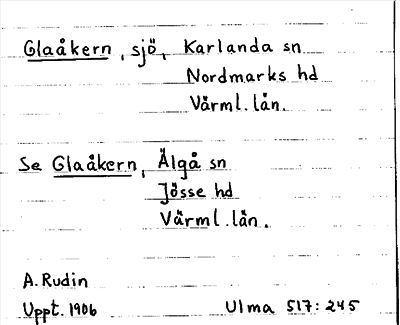 Glaåkern, sjö, Karlanda sn
Nordmarks hd
Värml. län.
Se Glaåkern, Älgå sn
Jösse hd
Värml. län.
A. Rudin
Uppt. 1906 Ulma 517:245